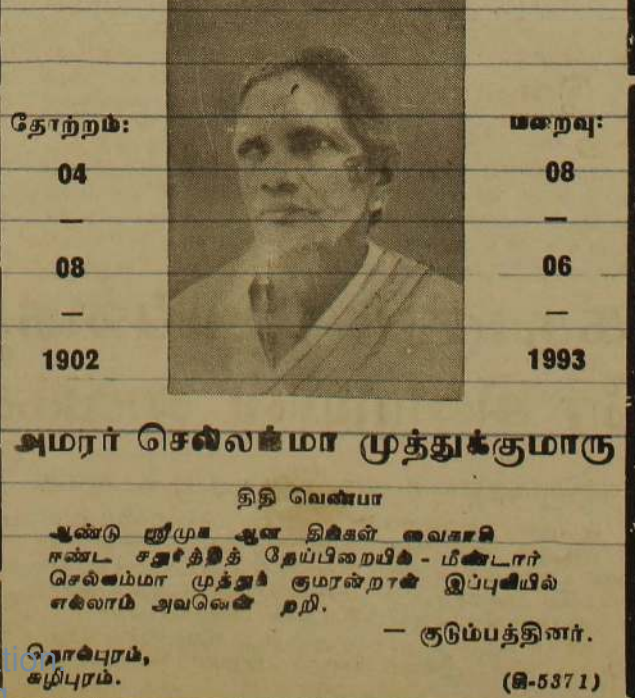 தோற்றம்:
04
—
08
—
1902
மறைவு:
08
—
06
—
1993
அமரர் செல்லம்மா முத்துக்குமாரு
திதி வெண்பா
ஆண்டு ஸ்ரீமுக ஆன திங்கள் வைகாசி
ஈண்ட சதுர்த்தித் தேய்பிறையில் - மீண்டார்
செல்லம்மா முத்துக் குமரன்றாள் இப்புவியில்
எல்லாம் அவலென் றறி.
— குடும்பத்தினர்.
தொல்புரம்,
சுழிபுரம்.
(இ-5371)
tion.